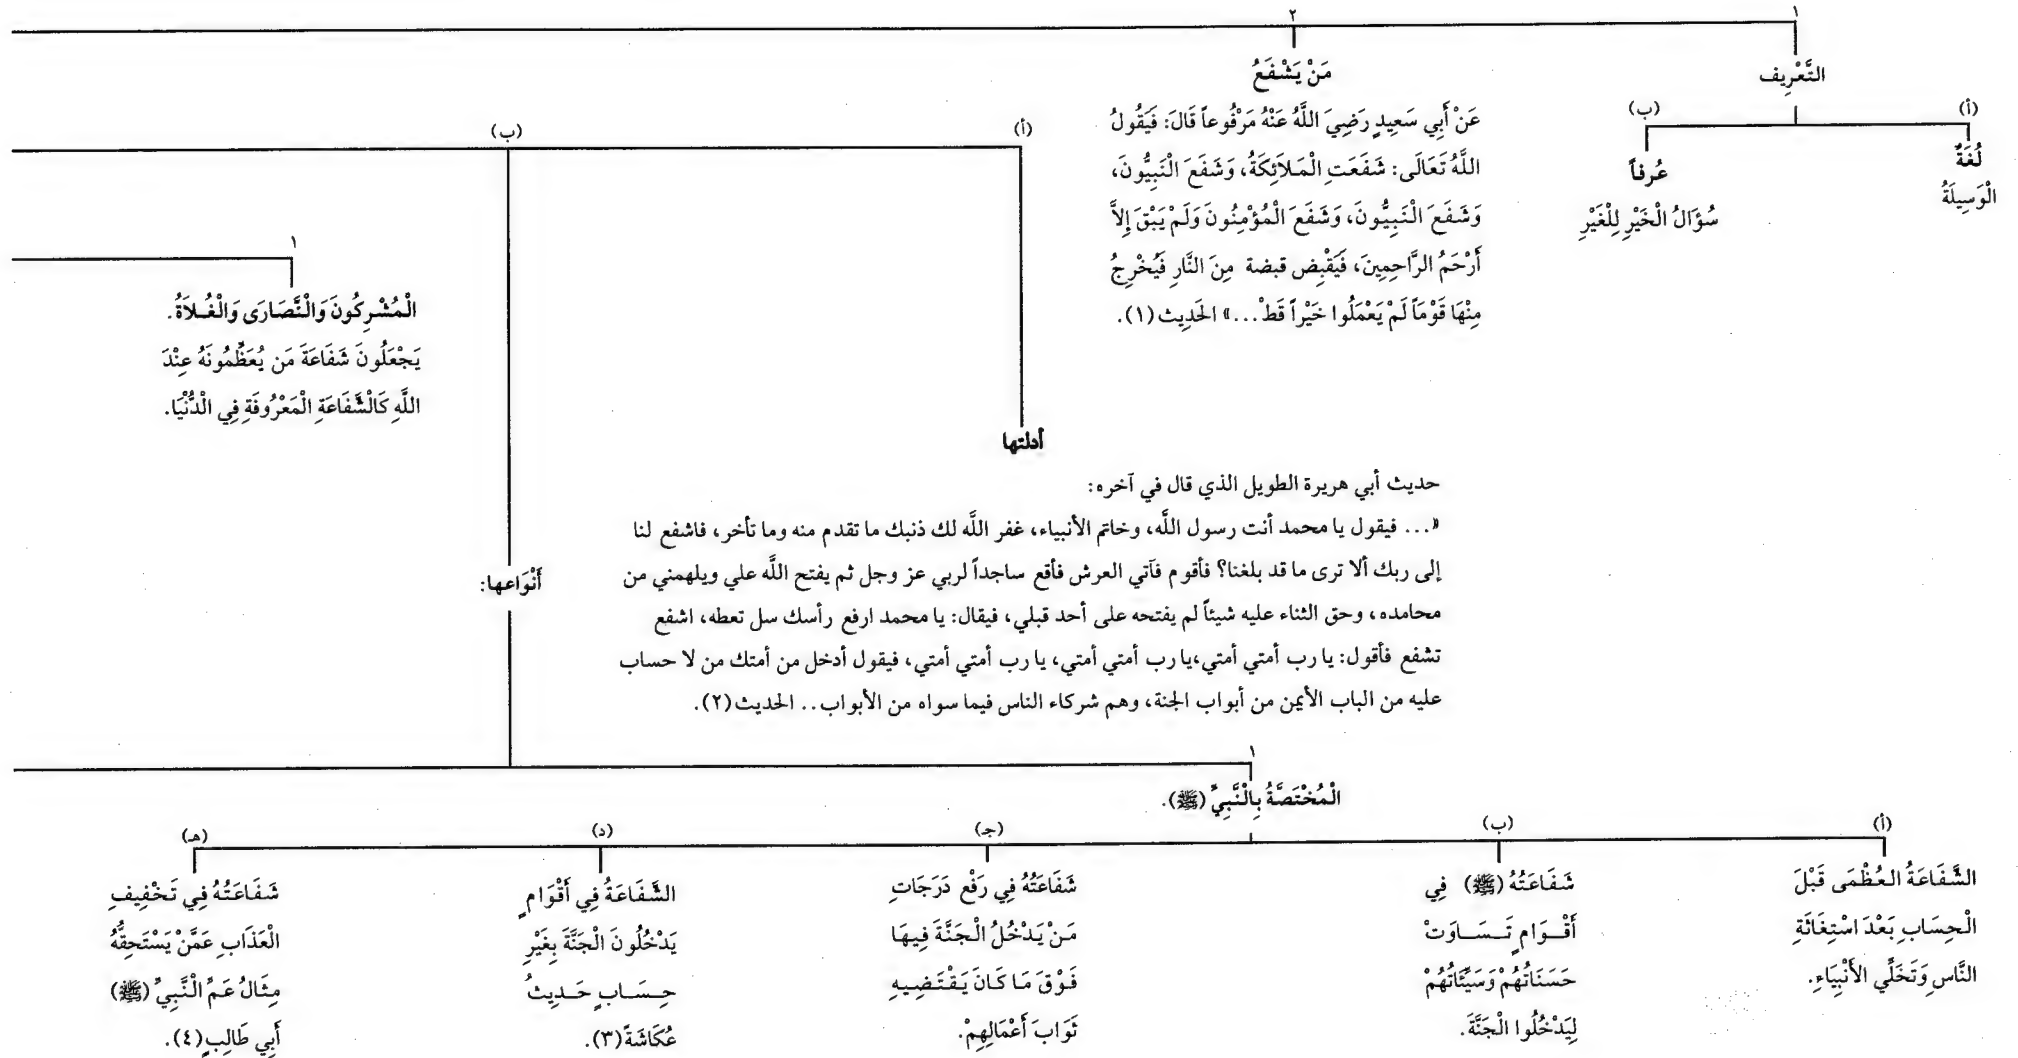 ١
التَّعْرِيف
(أ)
لُغَةً
الْوَسِيلَةُ
(ب)
عُرفاً
سُؤَالُ الْخَيْرِ لِلْغَيْرِ
٢
مَنْ يَشْفَعُ
عَنْ أَبِي سَعِيدٍ رَضِيَ اللَّهُ عَنْهُ مَرْفُوعاً قَالَ: فَيَقُولُ
اللَّهُ تَعَالَى: شَفَعَتِ الْمَلاَئِكَةُ، وَشَفَعَ الْنَبِيُّونَ،
وَشَفَعَ الْنَبِيُّونَ، وَشَفَعَ الْمُؤْمِنُونَ وَلَمْ يَبْقَ إِلاَّ
أَرْحَمُ الرَّاحِمِينَ، فَيَقْبِض قبضة مِنَ النَّارِ فَيُخْرِجُ
مِنْهَا قَوْمَاً لَمْ يَعْمَلُوا خَيْراً قَطْ...» الحَدِيث (١).
(أ)
أدلتها
حديث أبي هريرة الطويل الذي قال في آخره:
«... فيقول يا محمد أنت رسول اللَّه، وخاتم الأنبياء، غفر اللَّه لك ذنبك ما تقدم منه وما تأخر، فاشفع لنا
إلى ربك ألا ترى ما قد بلغنا؟ فأقوم فآتي العرش فأقع ساجداً لربي عز وجل ثم يفتح اللَّه علي ويلهمني من
محامده، وحق الثناء عليه شيئاً لم يفتحه على أحد قبلي، فيقال: يا محمد ارفع رأسك سل تعطه، اشفع
تشفع فأقول: يا رب أمتي أمتي،يا رب أمتي أمتي، يا رب أمتي أمتي، فيقول أدخل من أمتك من لا حساب
عليه من الباب الأيمن من أبواب الجنة، وهم شركاء الناس فيما سواه من الأبواب.. الحديث (٢).
(ب)
أَنْوَاعها:
١
الْمُشْرِكُونَ وَالْنَّصَارَى وَالْغُلاَةُ.
يَجْعَلُونَ شَفَاعَةَ مَن يُعَظِّمُونَهُ عِنْدَ
اللَّهِ كَالْشَّفَاعَةِ الْمَعْرُوفَةِ فِي الْدُّنْيَا.
١
الْمُخْتَصَّةُ بِالْنَّبِيِّ (ﷺ).
(أ)
الشَّفَاعَةُ العُظْمَى قَبْلَ
الْحِسَابِ بَعْدَ اسْتِغَاثَةِ
النَّاسِ وَتَخَلِّي الأَنْبِيَاءِ.
(ب)
شَفَاعَتُهُ (ﷺ) فِي
أَقْوَامٍ تَسَاوَتْ
حَسَنَاتُهُمْ وَسَيِّئَاتُهُمْ
لِيَدْخُلُوا الْجَنَّةَ.
(جـ)
شَفَاعَتُهُ فِي رَفْعِ دَرَجَاتِ
مَنْ يَدْخُلُ الْجَنَّةَ فِيهَا
فَوْقَ مَا كَانَ يَقْتَضِيهِ
ثَوَابَ أَعْمَالِهِمْ.
(د)
الشَّفَاعَةُ فِي أَقْوَامٍ
يَدْخُلُونَ الْجَنَّةَ بِغَيْرِ
حِسَابٍ حَدِيثُ
عُكَاشَةً (٣).
(هـ)
شَفَاعَتُهُ فِي تَخْفِيفِ
الْعَذَابِ عَمَّنْ يَسْتَحِقُّهُ
مِثَالُ عَمِّ الْنَّبِيِّ (ﷺ)
أَبِي طَالِبٍ (٤).